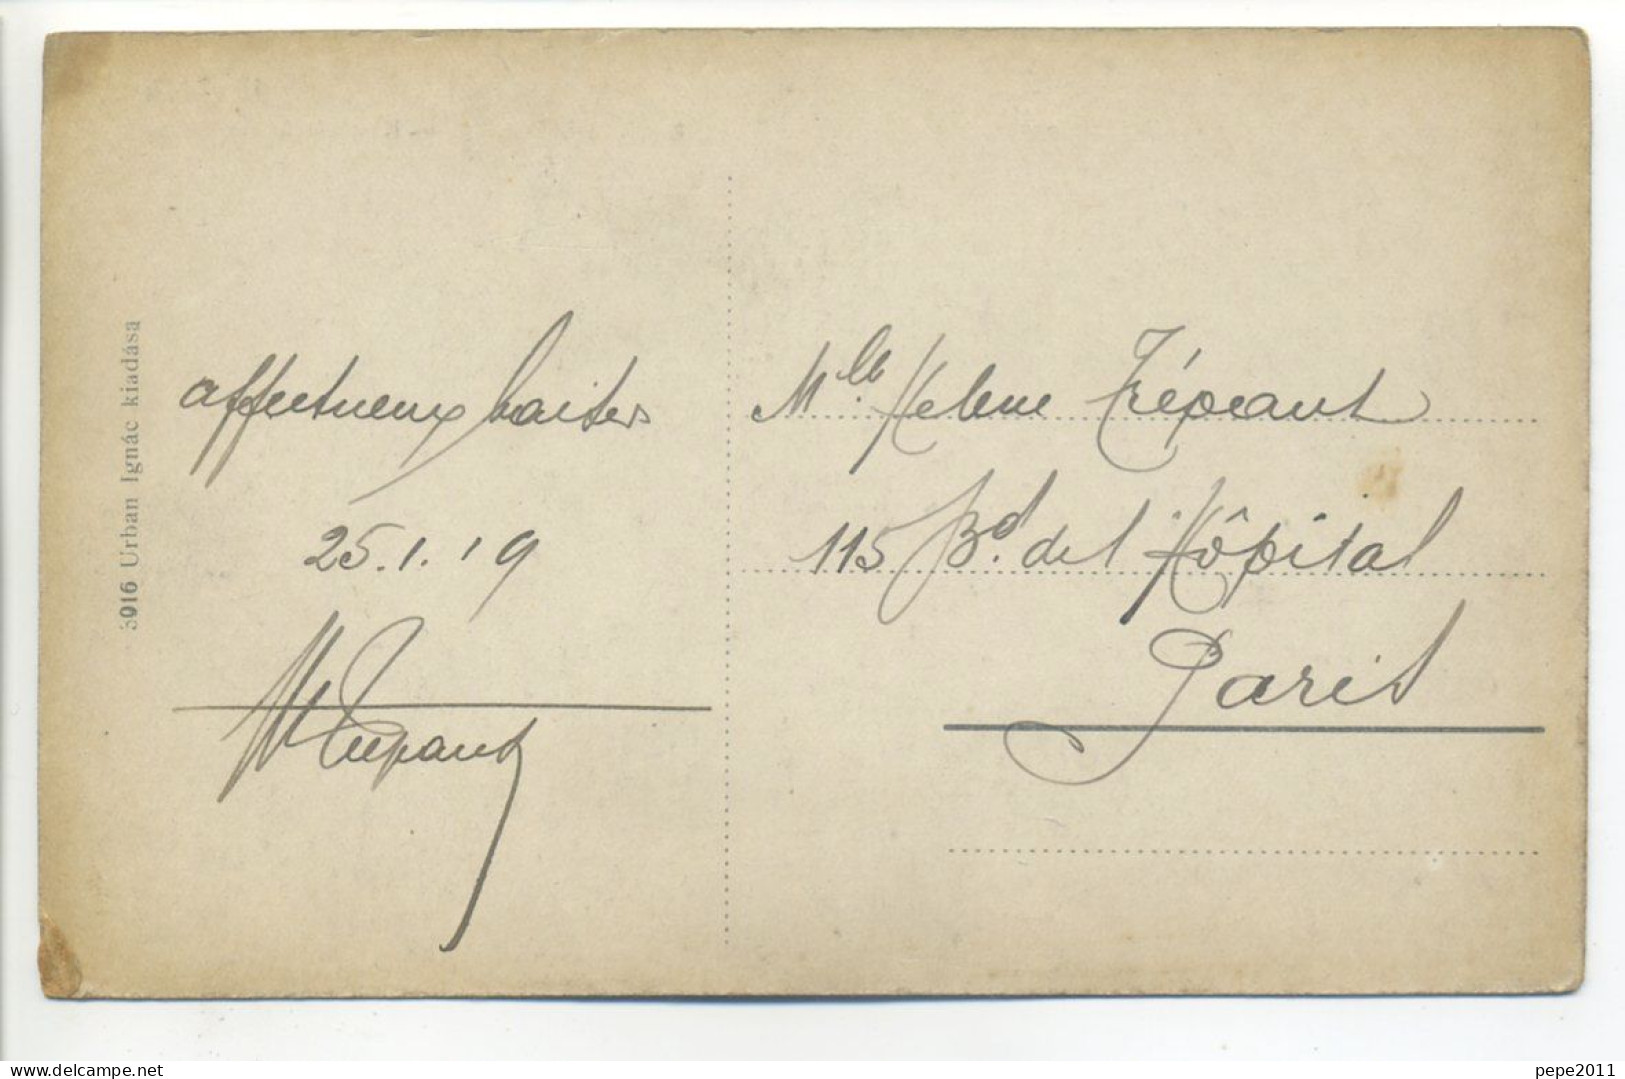 3916 Urban Ignác kiadása
affectueux baisers
25.1.19
Mlle Helene Trépeant
115 Bd. de l Hôpital
Paris
www.delcampe.net
pepe2011